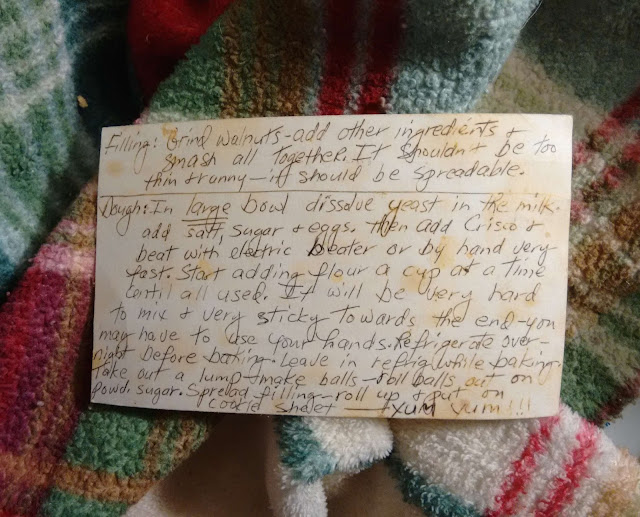 Filling: Grind walnuts-add other ingredients +
smash all together. It shouldn't be too
thin + runny—it should be spreadable.
Dough: In large bowl dissolve yeast in the milk.
add salt, sugar + eggs. then add Crisco +
beat with electric beater or by hand very
fast. Start adding flour a cup at a time
until all used. It will be very hard
to mix + very sticky towards the end-you
may have to use your hands. Refrigerate over-
night before baking. Leave in refrig while baking.
Take out a lump-make balls-roll balls out on
powd. sugar. Spread filling-roll up + put on
cookie sheet — Yum Yum!!!